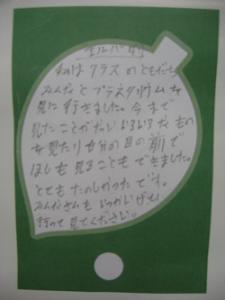 わたしはクラスのともだち
みんなとプラネタリウムを
見に行きました。今まで
見たことがないいろいろなもの
を見たり自分の目の前で
ほしも見ることもできました。
とてもたのしかったです。
みんなさんも いっかいげも
行って見てください。